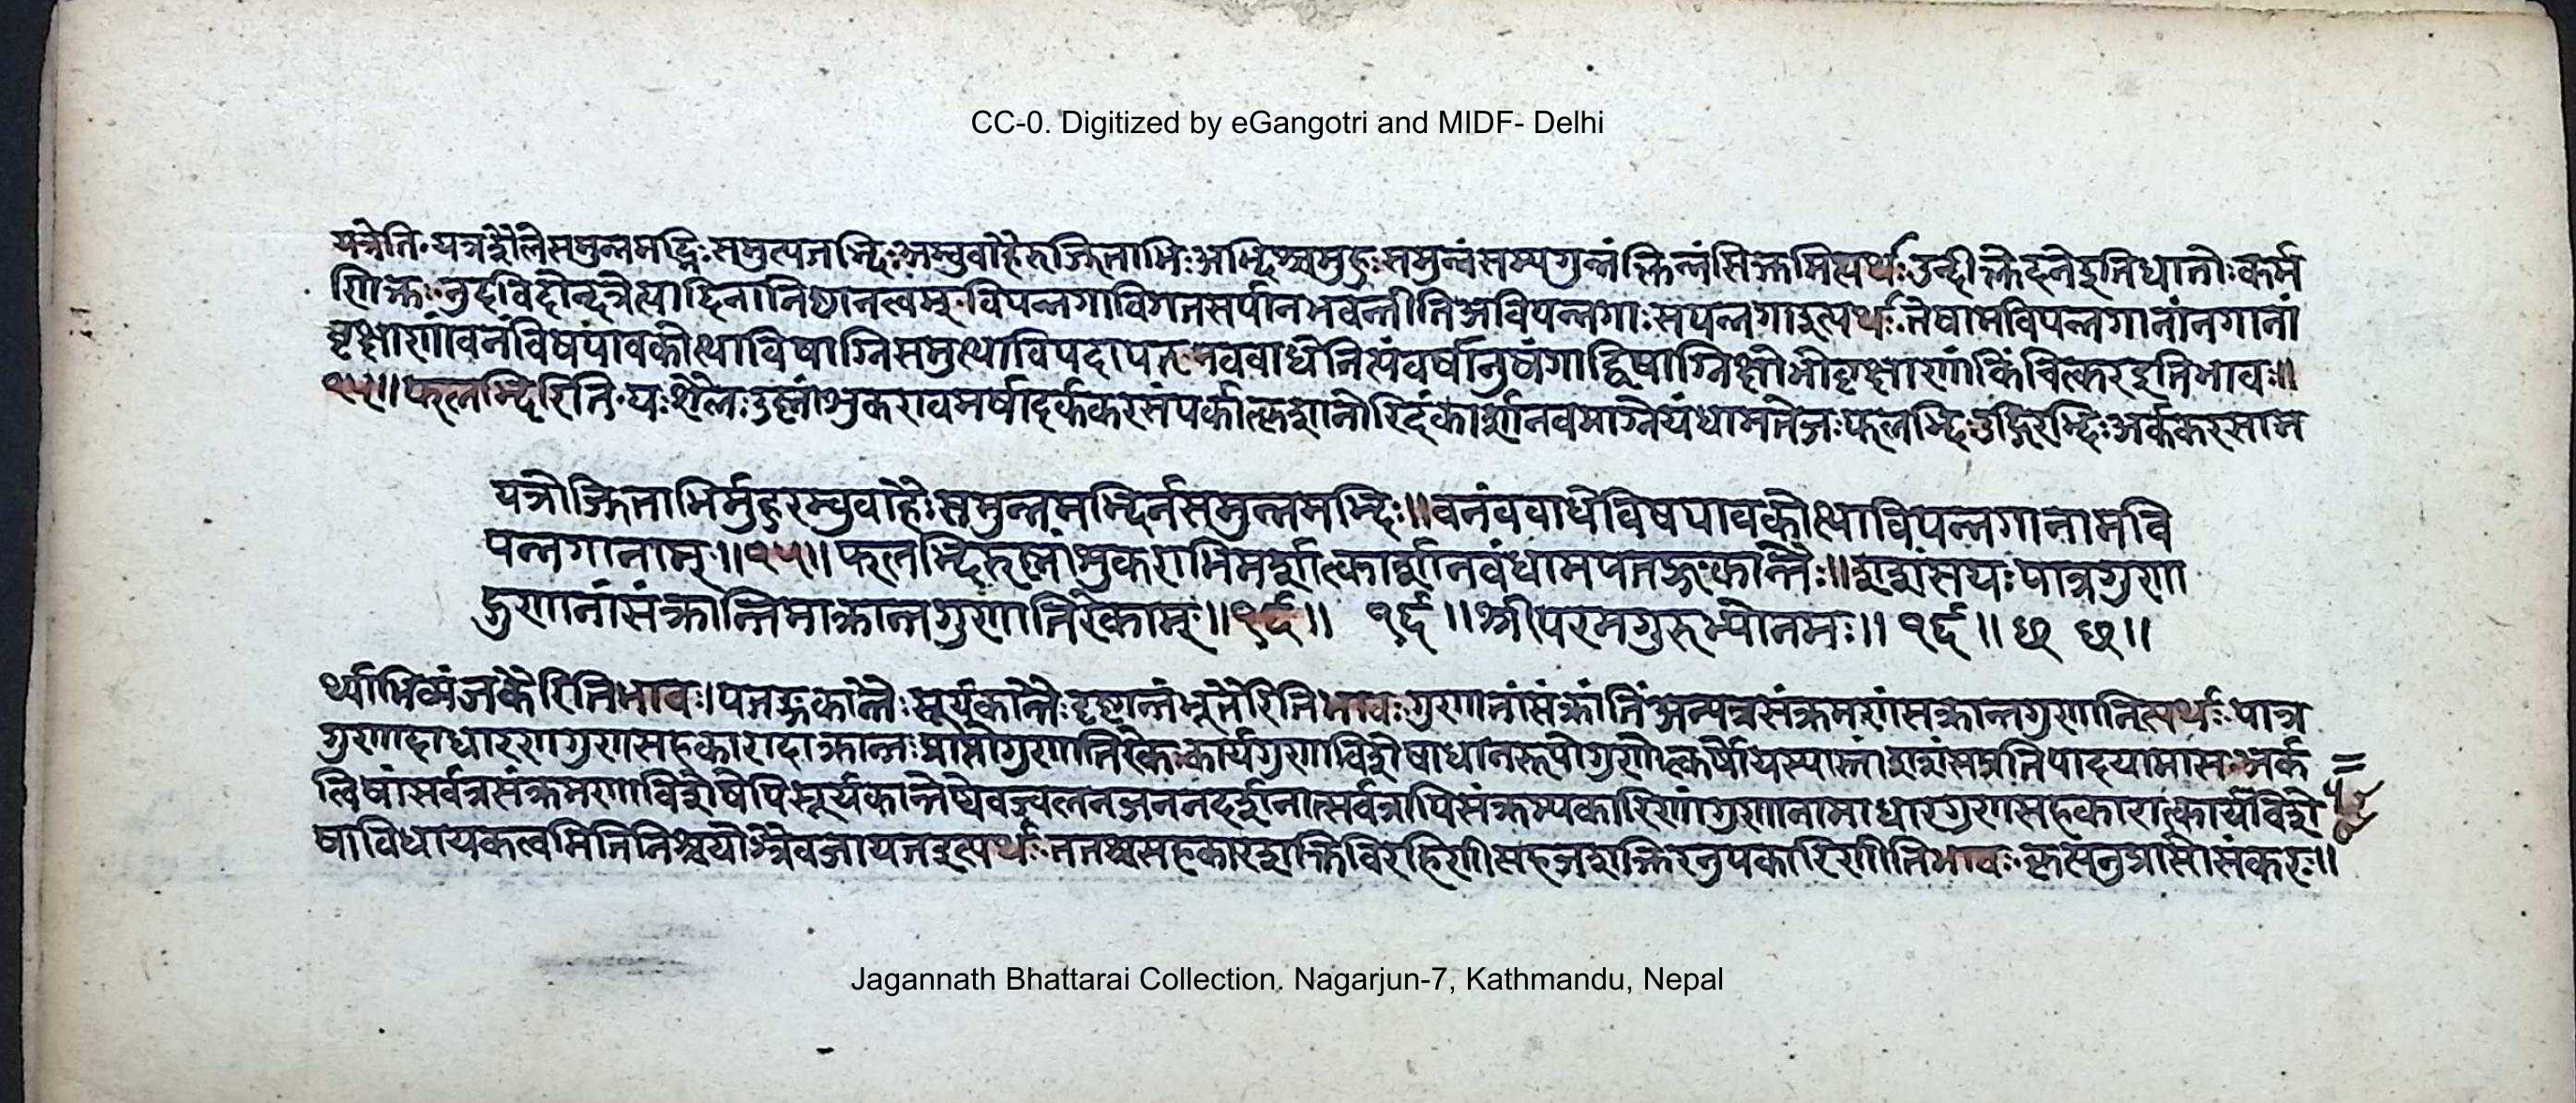 CC-0. Digitized by eGangotri and MIDF- Delhi
यत्रेति॰यत्रशैलेसमुन्नमद्भिःसमुत्पतद्भिःअम्बुवाहैरुज्झिताभिःअद्भिश्चमुहुःसमुन्नंसम्यगुन्नंक्लिन्नंसिक्तमित्यर्थःउन्दीक्लेदनेइतिधातोःकर्म
णिक्तः॰नुदविदोन्दत्रेत्यादिनानिष्ठानत्वम्॰विपन्नगाविगतसर्पानभवन्तीतिअविपन्नगाःसपन्नगाइत्यर्थःतेषामविपन्नगानांनगानां
वृक्षाणांवनंविषपावकोत्थाविषाग्निसमुत्थाविपदापत्नववाधेनित्यंवर्षानुषंगाद्विषाग्निक्षोभोवृक्षाणांकिंचित्करइतिभावः॥
१५॥फलद्भिरिति॰यःशैलःउष्णांशुकरावमर्षादर्ककरसंपर्कात्कृशानोरिदंकार्शानवमाग्नेयंधामतेजःफलद्भिःउद्गिरद्भिःअर्ककरसाम
यत्रोज्झिताभिर्मुहुरम्बुवाहैःसमुन्नमद्भिर्नसमुन्नमद्भिः॥वनंववाधेविषपावकोत्थाविपन्नगानामवि
पन्नगानाम्॥१५॥फलद्भिरुष्णांशुकराभिमर्शात्कार्शानवंधामपतङ्गकान्तैः॥शशंसयःपात्रगुणा
द्गुणानांसंक्रान्तिमाक्रान्तगुणातिरेकाम्॥१६॥ १६॥श्रीपरमगुरुभ्योनमः॥ १६॥ छ छ॥
र्थ्याभिव्यंजकैरितिभावः।पतङ्गकान्तैःसूर्यकान्तैःदृष्टान्तभूतैरितिभावःगुणानांसंक्रांतिंअन्यत्रसंक्रमणंसक्रान्तगुणानित्यर्थःपात्र
गुणादाधारगुणसहकारादाक्रान्तःप्राप्तोगुणातिरेकःकार्यगुणविशेषाधानरूपोगुणोत्कर्षोयस्यास्तांशशंसप्रतिपादयामास॰अर्क
त्विषांसर्वत्रसंक्रमणाविशेषेपिसूर्यकान्तेष्वेवज्वलनजननदर्शनात्सर्वत्रापिसंक्रम्यकारिणांगुणानामाधारगुणसहकारात्कार्यविशे
षाविधायकत्वमितिनिश्चयोत्रैवजायतइत्यर्थःततश्चसहकारशक्तिविरहिणीसहजशक्तिरनुपकारिणीतिभावःवृत्त्यनुप्रासोसंकरः॥
Jagannath Bhattarai Collection. Nagarjun-7, Kathmandu, Nepal